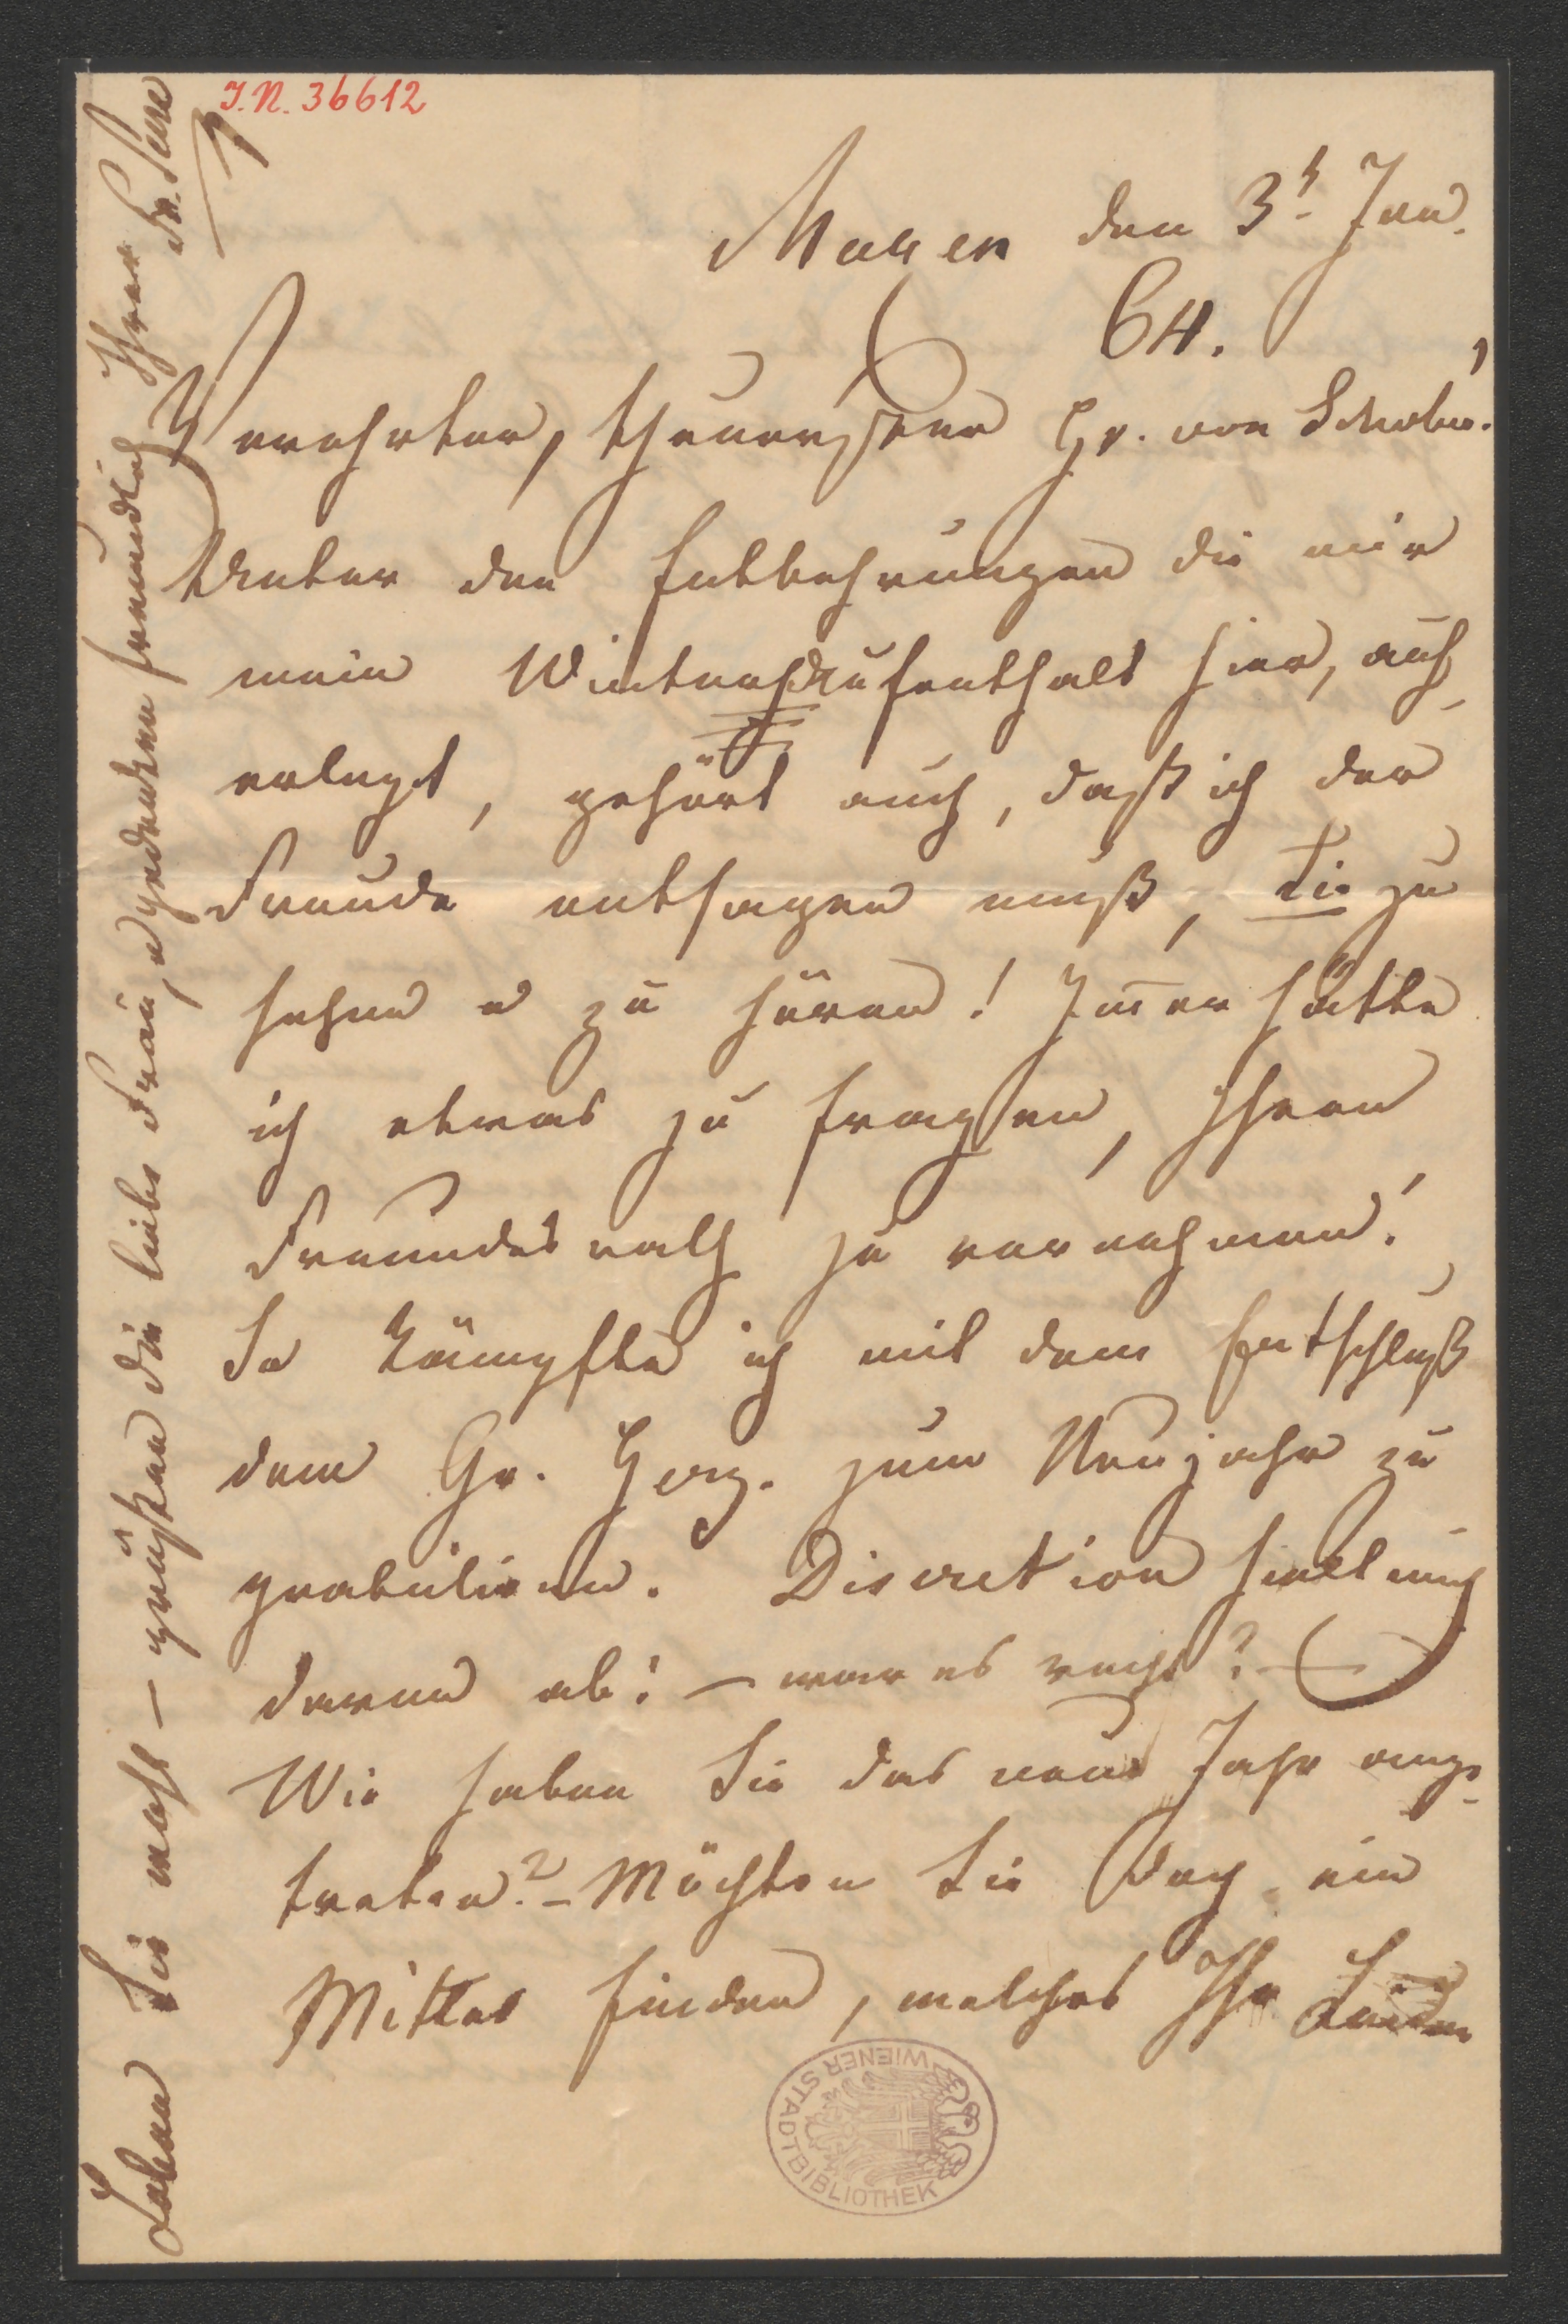 J.N. 36612
Maxen den 3t Jan.
64.
Verehrter, theuerster Hr. von Schober!
Unter den Entbehrungen die mir
mein Winteraufenthalt hier, auf-
erlegt, gehört auch, daß ich der
Freude entsagen muß, Sie zu
sehen u zu hören! Im̅er hätte
ich etwas zu fragen, Ihren
Freundesrath zu vernehmen!
So kämpfte ich mit dem Entschluß
dem Gr. Herz. zum Neujahr zu
gratuliren. Discretion hielt mich
davon ab! – war es recht? –
Wie haben Sie das neue Jahr ange-
treten? – Möchten Sie doch ein
Mittel finden, welches Ihr Leiden
Leben Sie wohl – grüßen die liebe Frau, u gedenken freundlich Ihrer
Fr. Serre
WIENER STADTBIBLIOTHEK